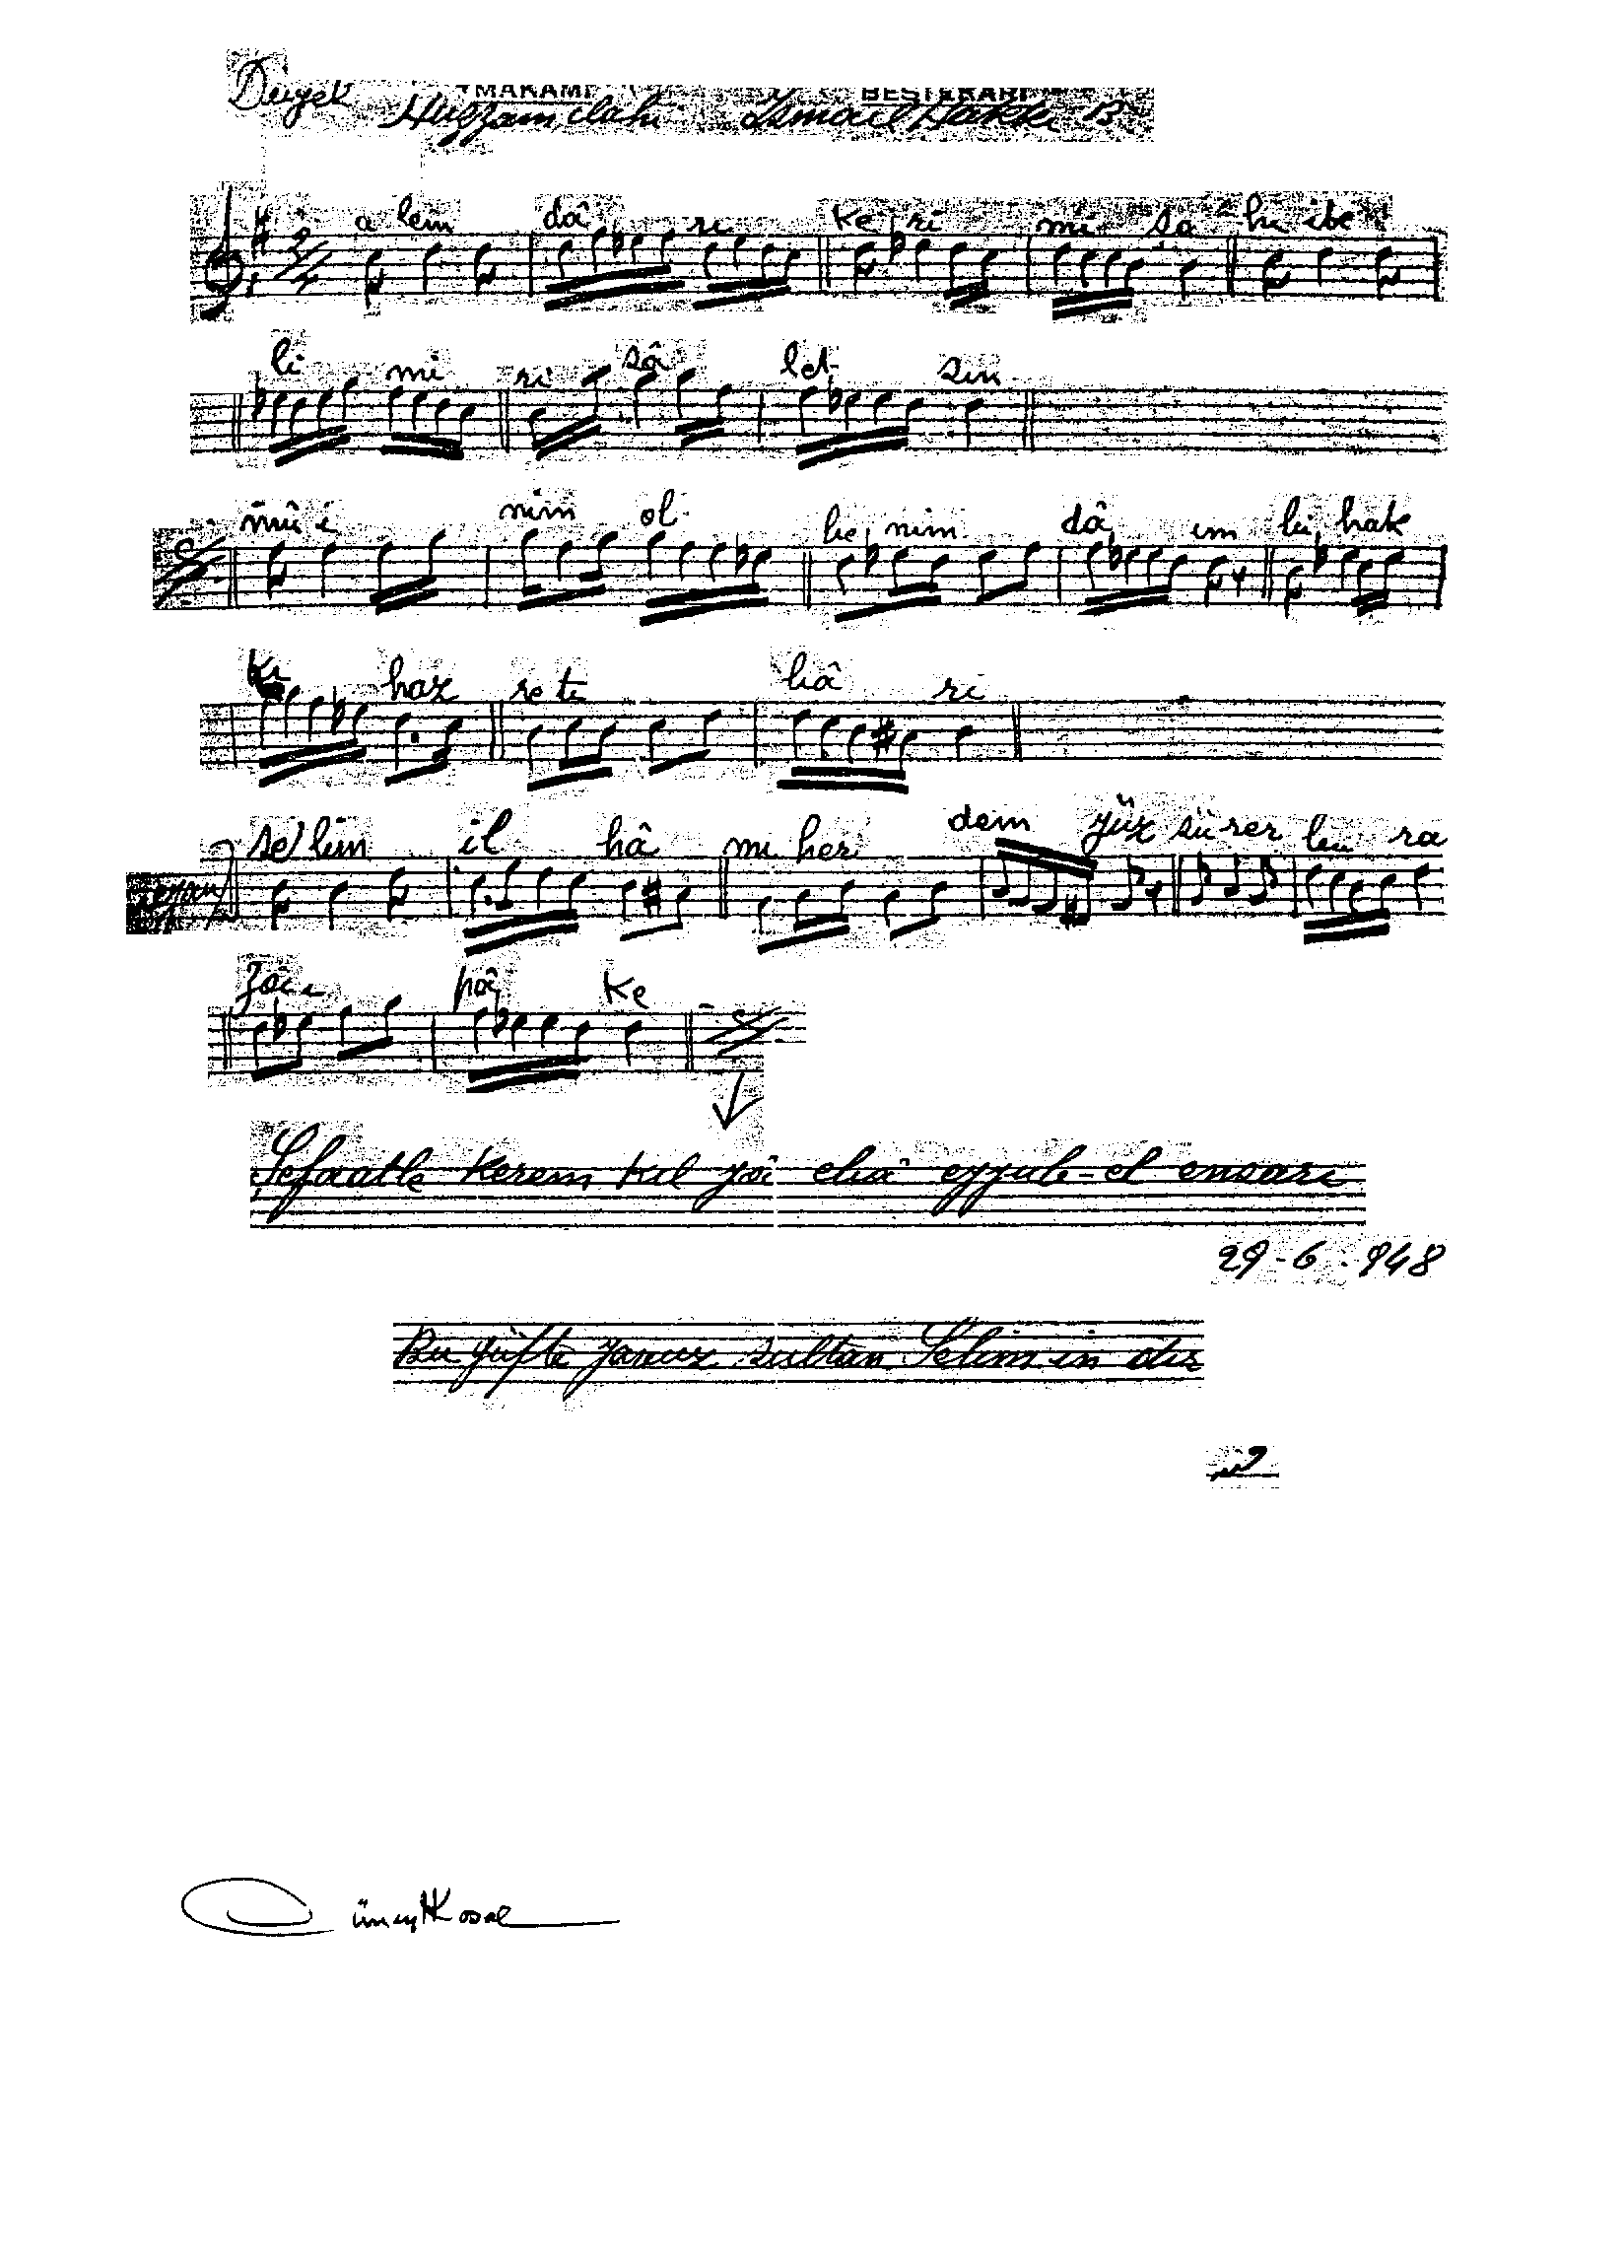 Düyek MAKAMI Hüzzam ilahi BESTEKARI İsmail Hakkı B
a lem dâ ri ke ri mi şa hı ibe
li mi ri sâ let sin
mû i nim ol be nim dâ im bi hak
kı haz re ti bâ ri
se lim il hâ mı her dem yüz sü rer bu ra
zâi pâ ke
Şefaatle kerem kıl yâ ebâ eyyub-el ensari
29-6-948
Bu güfte yavuz sultan Selim in dir
Cüneyt Kosal